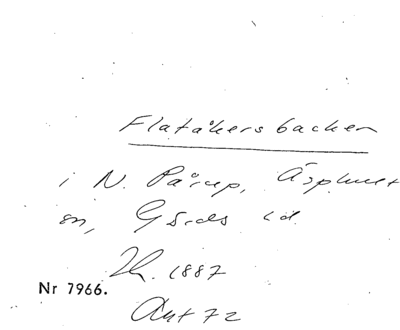 Flatåkersbacken
i N. Pårup, Äsphult
sn, Gärds hd.
1887
Nr 7966.
Ant 72